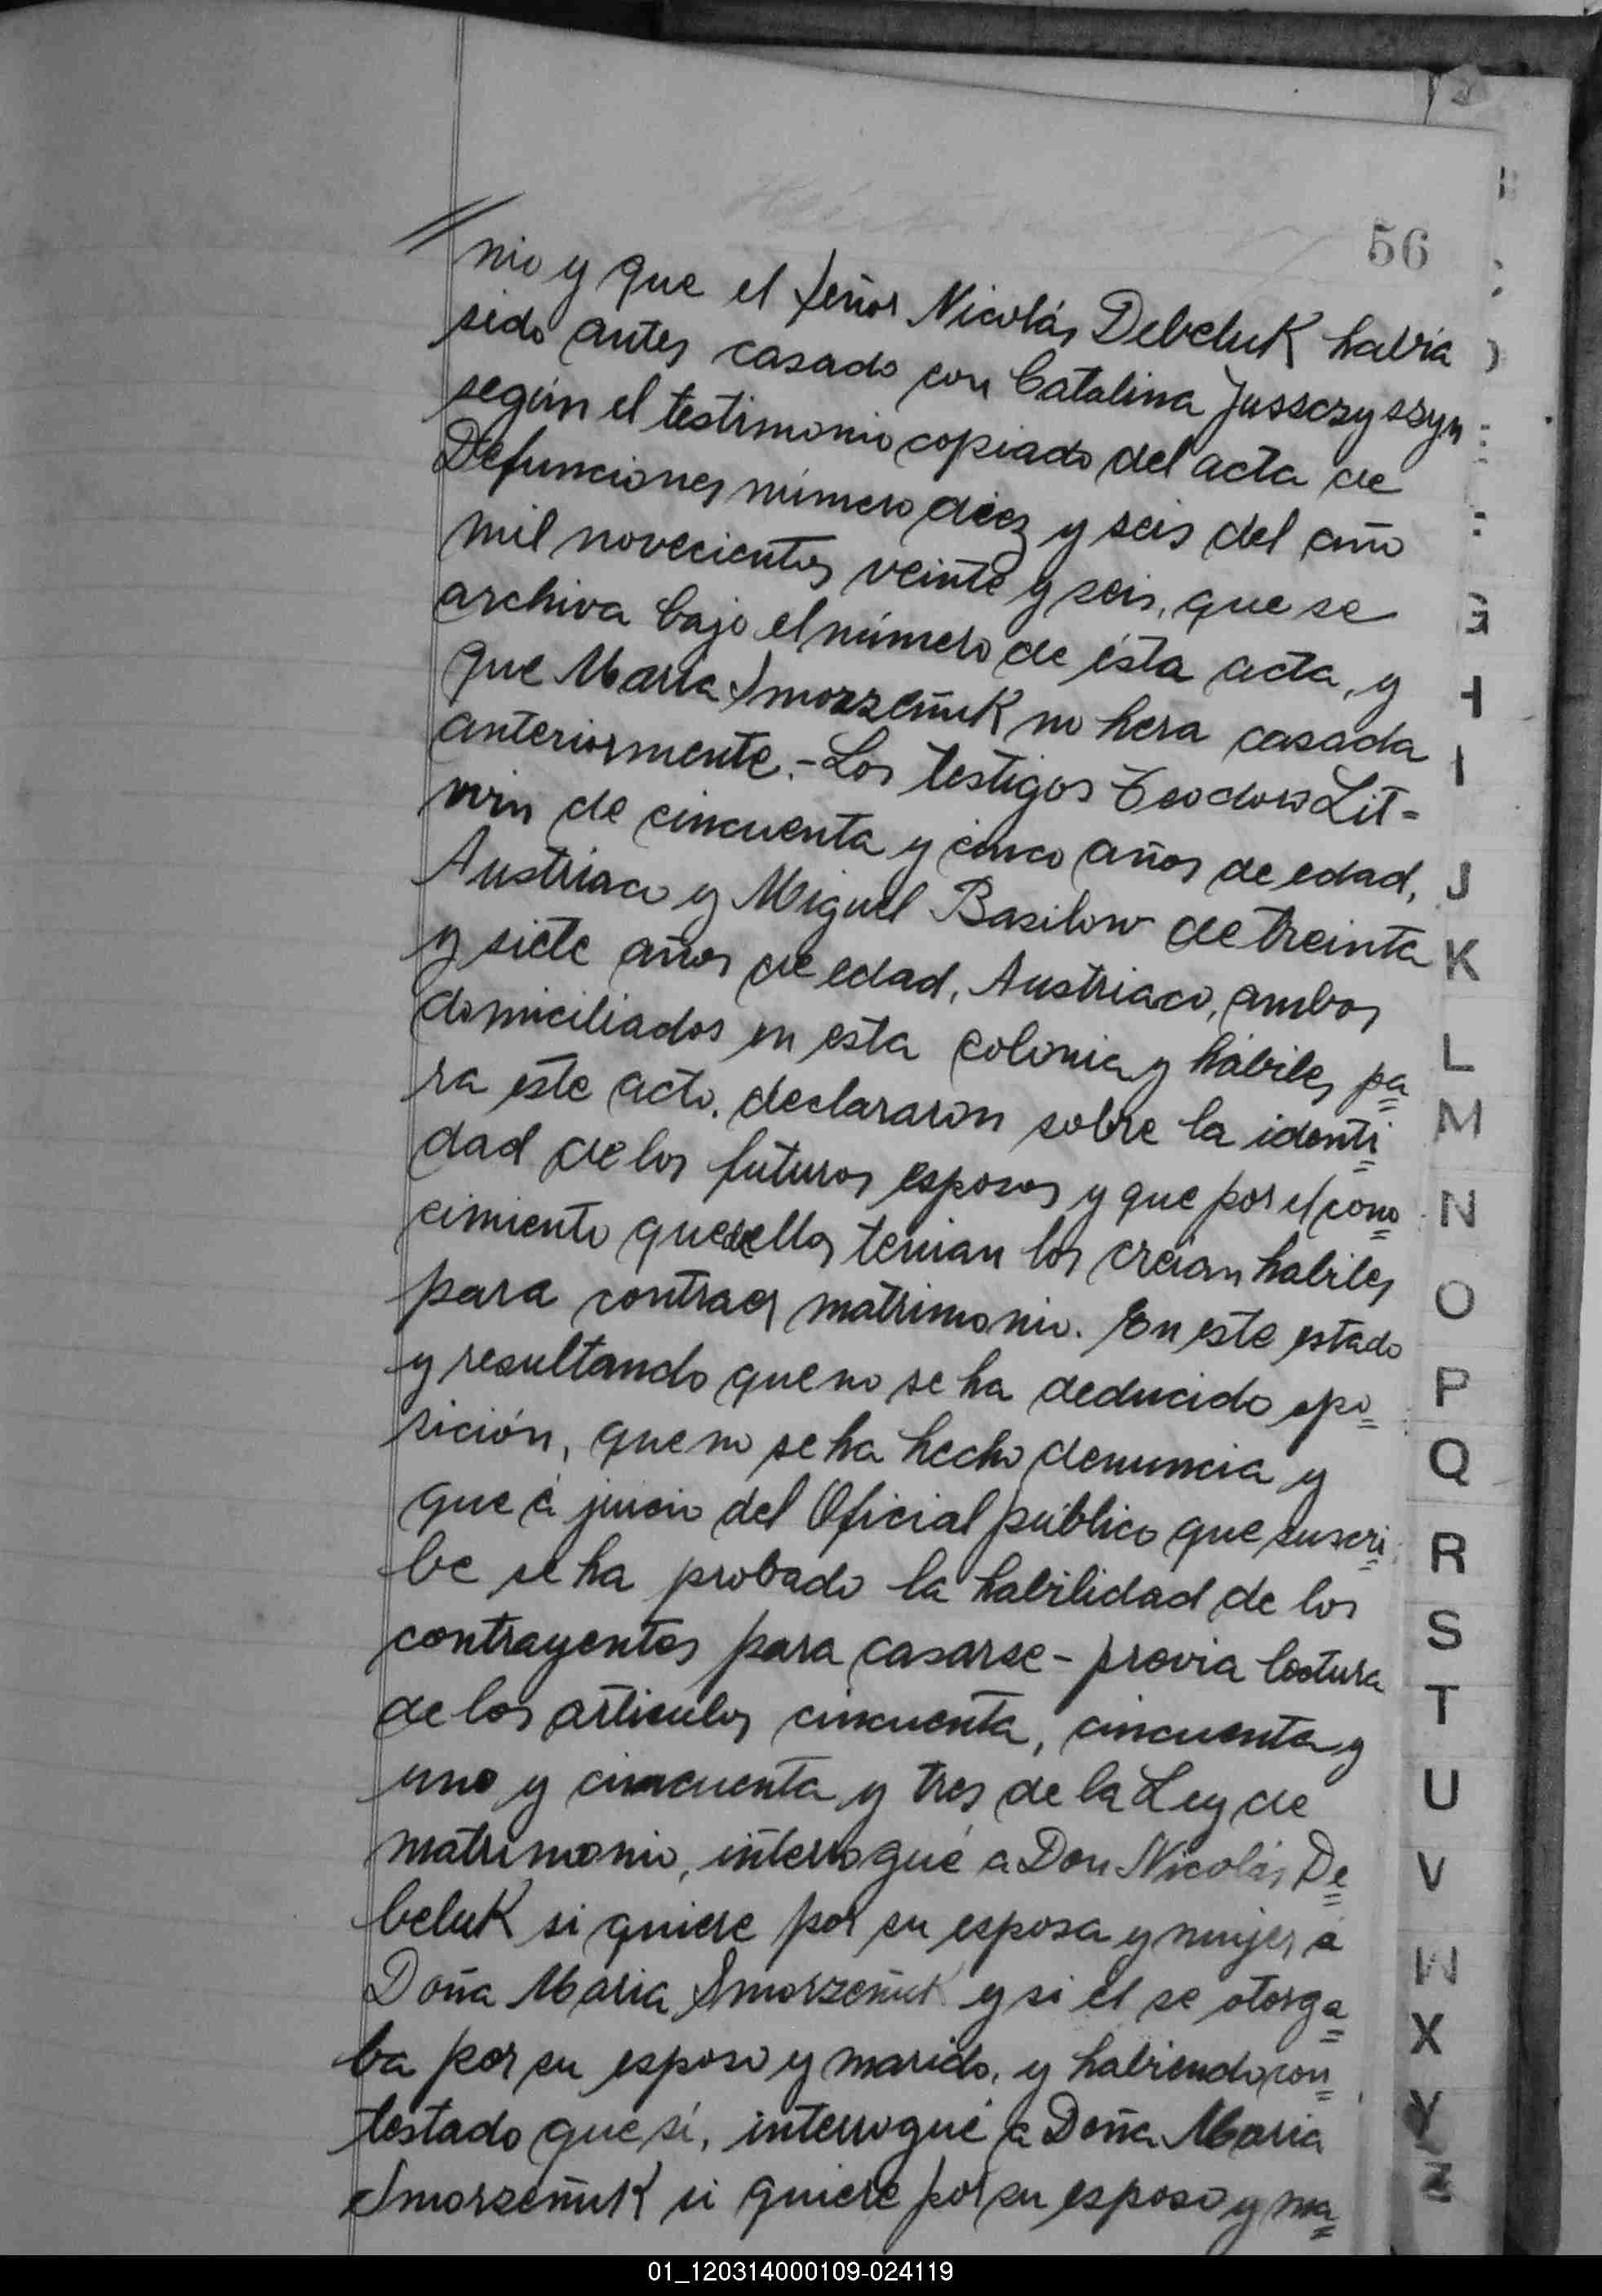 56
nio y que el señor Nicolás Debeluk habia
sido antes casado con Catalina Jusszyszyn
según el testimonio copiado del acta de
Defunciones número diez y seis del año
mil novecientos veinte y seis, que se
archiva bajo el número de ésta acta, y
que Maria Smorzeñuk no hera casada
anteriormente.- Los testigos Teodoro Lit=
win de cincuenta y cinco años de edad,
Austriaco y Miguel Basilow de treinta
y siete años de edad, Austriaco, ambos
domiciliados en esta colonia y hábiles pa=
ra este acto, declararon sobre la identi=
dad de los futuros esposos y que por el cono=
cimiento que de ellos tenian los creian habiles
para contraer matrimonio. En este estado
y resultando que no se ha deducido opo=
sición, que no se ha hecho denuncia y
que á juicio del Oficial público que suscri=
be se ha probado la habilidad de los
contrayentes para casarse - previa lectura
de los articulos cincuenta, cincuenta y
uno y cincuenta y tres de la Ley de
matrimonio, interrogué a Don Nicolás De=
beluk si quiere por su esposa y mujer á
Doña Maria Smorzeñuk y si el se otorga=
ba por su esposo y marido, y habiendo con=
testado que sí, interrogué a Doña Maria
Smorzeñuk si quiere por su esposo y ma=
G
H
I
J
K
L
M
N
O
P
Q
R
S
T
U
V
W
X
Y
Z
01_120314000109-024119